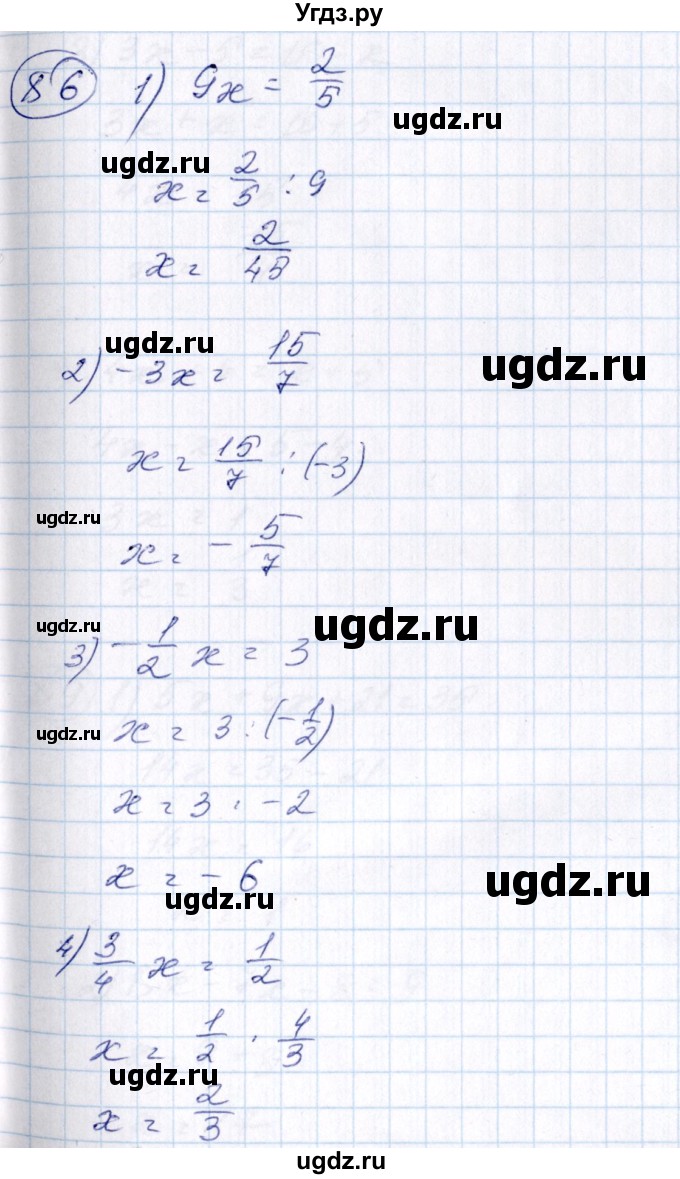 Угдз.ру
86 1) 9x = 2/5
ugdz.ru
ugdz.ru
x = 2/5 : 9
x = 2/45
ugdz.ru
2) -3x = 15/7
ugdz.ru
x = 15/7 : (-3)
ugdz.ru
x = - 5/7
ugdz.ru
ugdz.ru
3) - 1/2 x = 3
ugdz.ru
x = 3 : (- 1/2)
x = 3 · -2
x = - 6
ugdz.ru
ugdz.ru
4) 3/4 x = 1/2
x = 1/2 · 4/3
ugdz.ru
x = 2/3
ugdz.ru